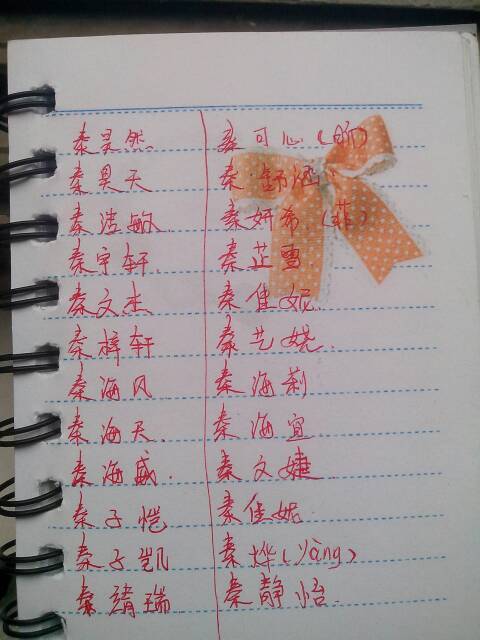 秦昊然 秦可心(昕)
秦昊天 秦舒涵
秦浩敏 秦妍希(菲)
秦宇轩 秦芷雪
秦文杰 秦佳妮
秦梓轩 秦艺妮
秦海风 秦海莉
秦海天 秦海宜
秦海威 秦文婕
秦子恺 秦佳妮
秦子凯 秦烨(yàng)
秦靖瑞 秦静怡